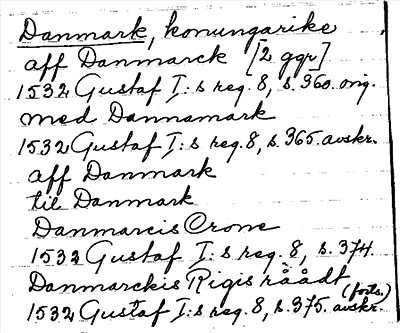 Danmark, konungarike
aff Danmarck [2 ggr]
1532 Gustaf I:s reg. 8, s. 360. orig.
med Dannamark
1532 Gustaf I:s reg. 8, s. 365. avskr.
aff Danmark
til Danmark
Danmarcis Crone
1532 Gustaf I:s reg. 8, s. 374
Danmarckis Rigis råådt
(forts.)
1532 Gustaf I:s reg. 8, s. 375. avskr.